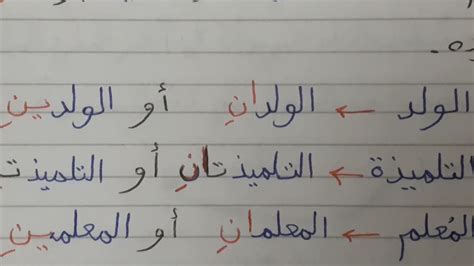 الولد ← الولدانِ أو الولدينِ
التلميذة ← التلميذتانِ أو التلميذت
المُعلم ← المعلمانِ أو المعلمينِ